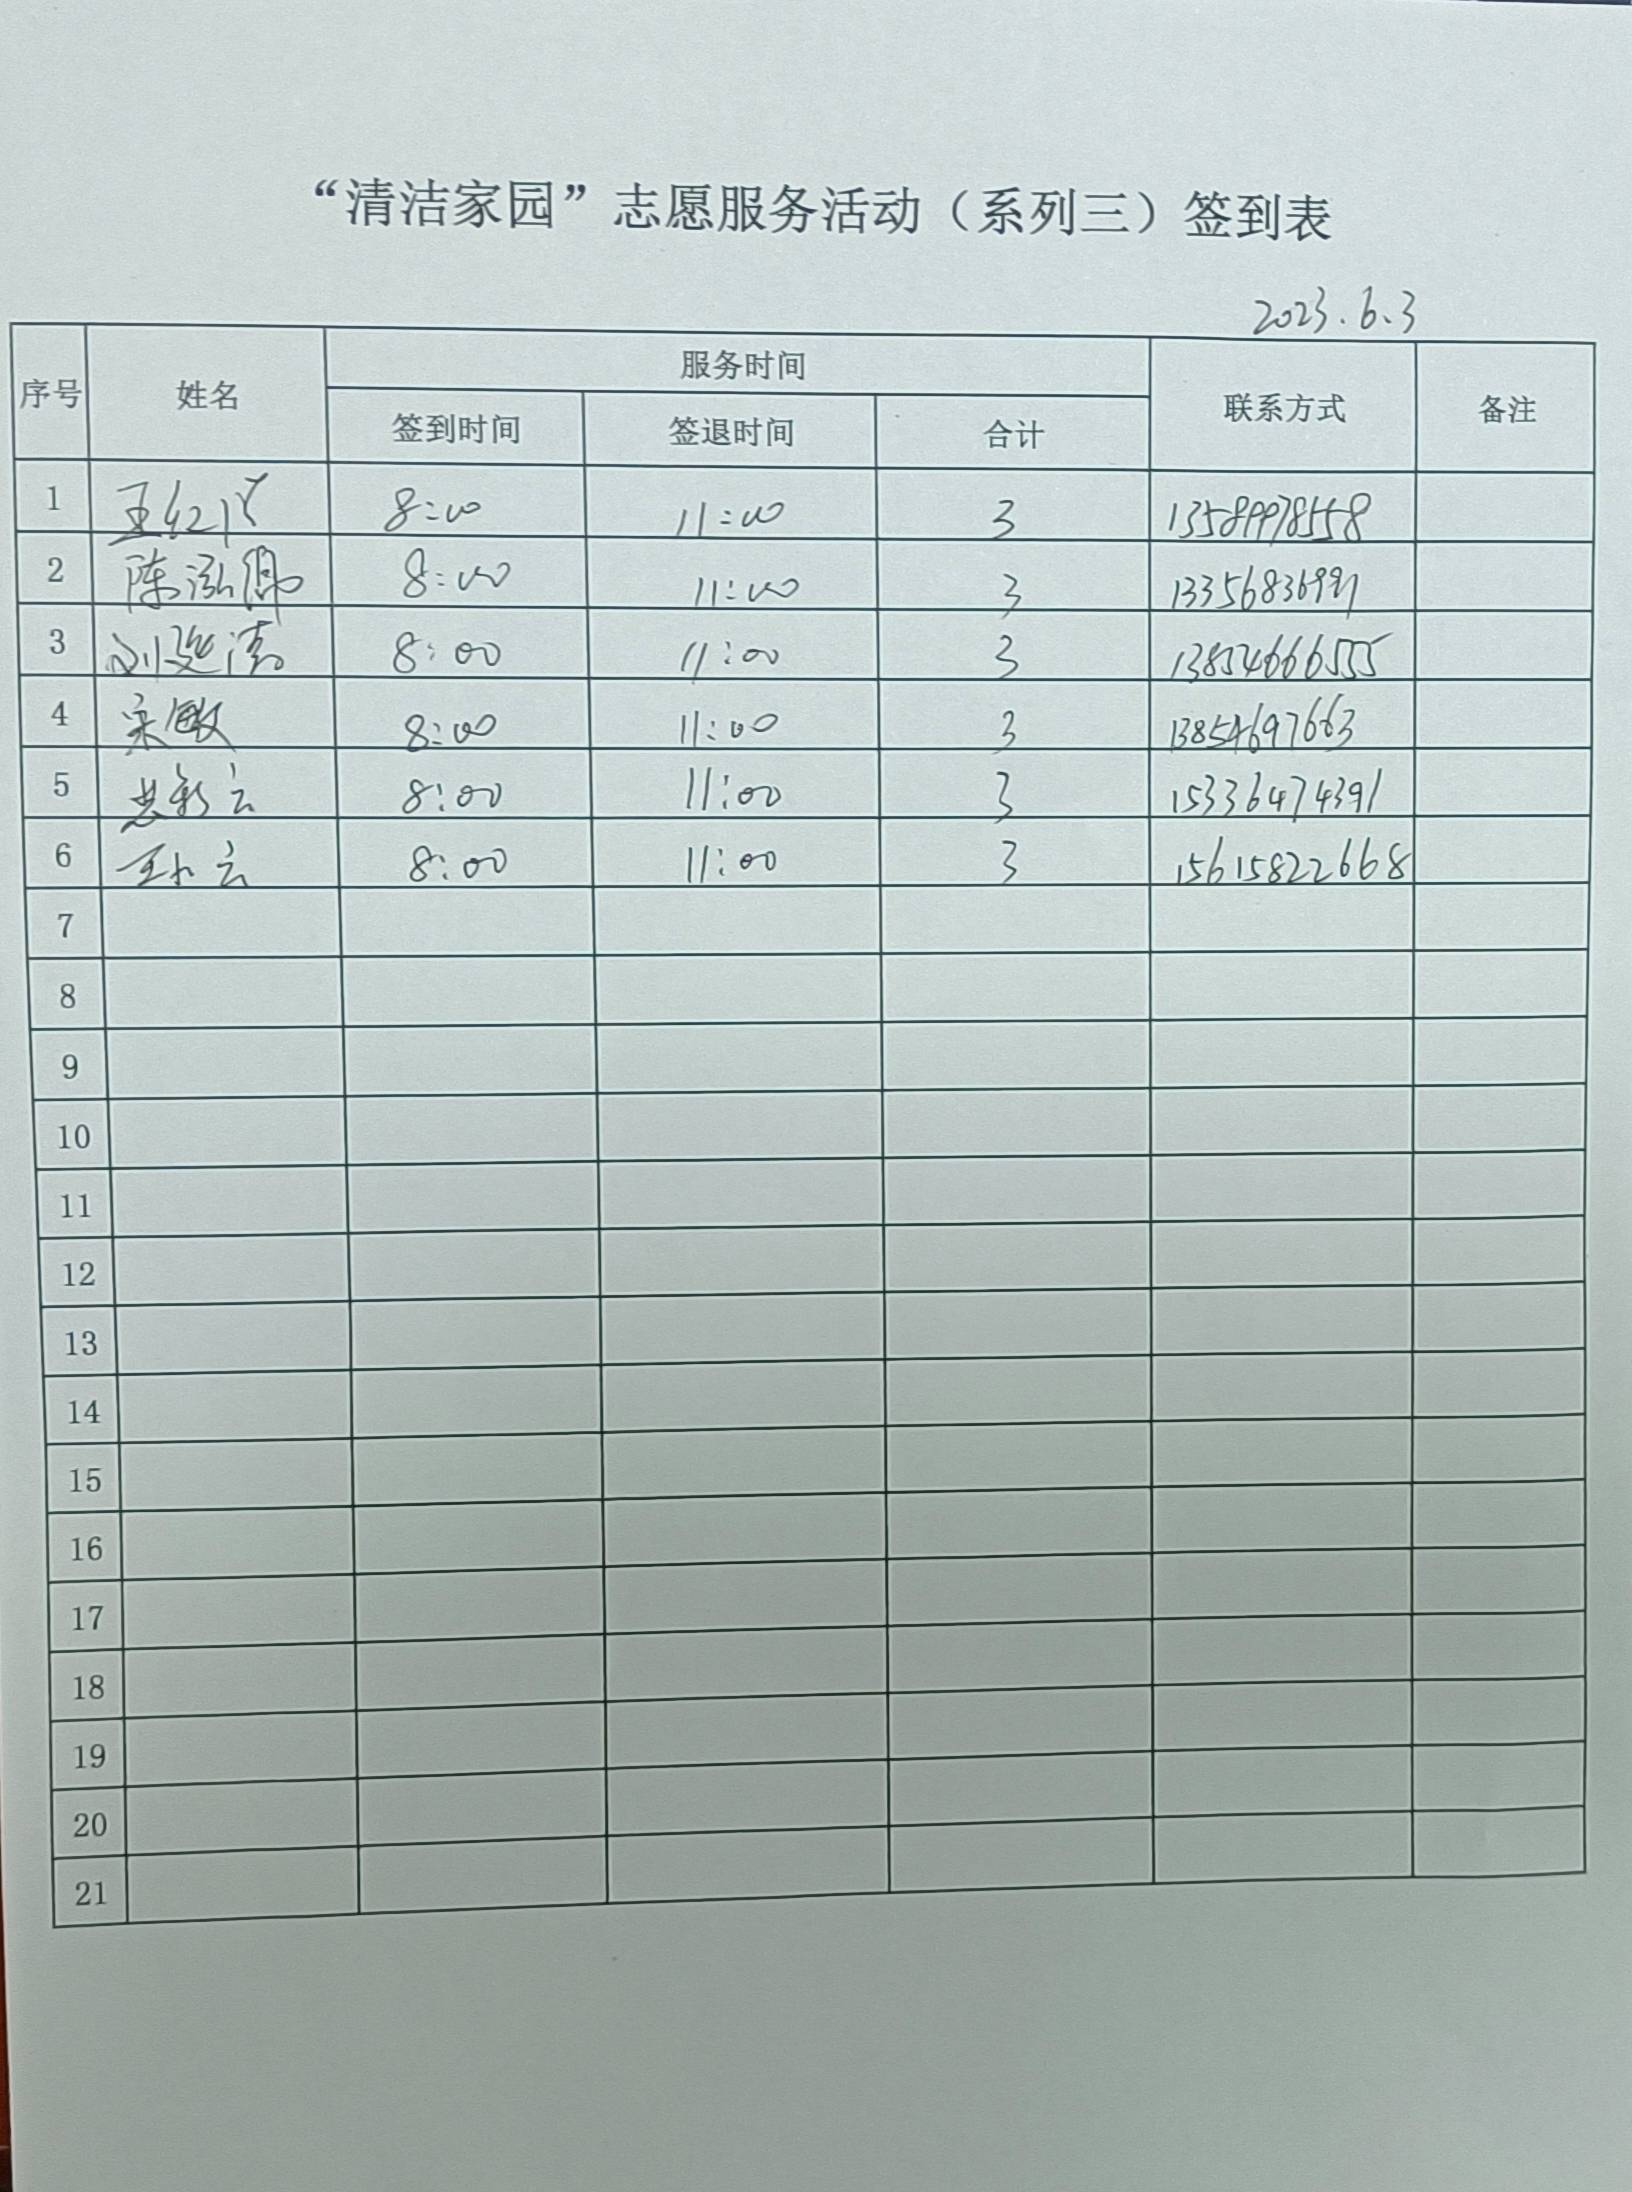 “清洁家园”志愿服务活动（系列三）签到表
2023.6.3
序号 姓名 服务时间 联系方式 备注
签到时间 签退时间 合计
1 王红 8:00 11:00 3 13589978558
2 陈泓 8:00 11:00 3 13356836991
3 刘 8:00 11:00 3 13854666555
4 宋敏 8:00 11:00 3 13854697663
5 彩云 8:00 11:00 3 15336474391
6 王小云 8:00 11:00 3 15615822668
7
8
9
10
11
12
13
14
15
16
17
18
19
20
21